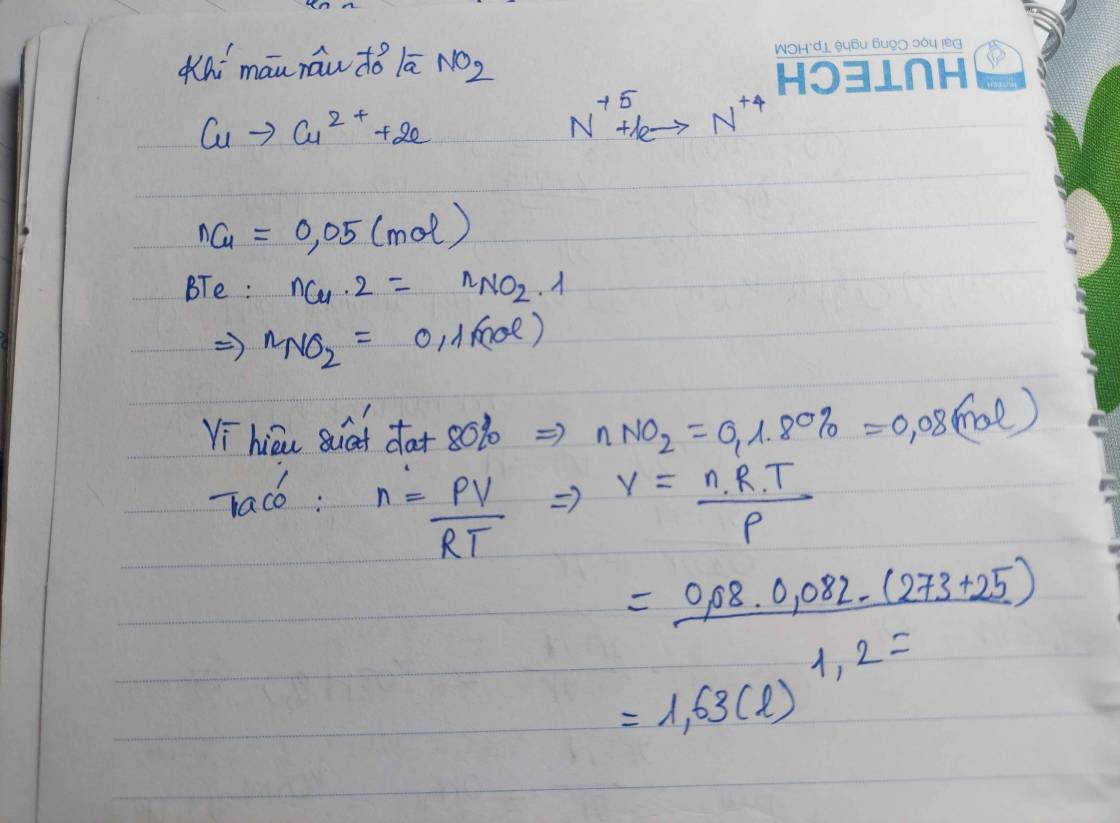 Khí màu nâu đỏ là NO2
Đại học Công nghệ Tp.HCM
HUTECH
Cu → Cu 2+ +2e N+5 +1e → N+4
nCu = 0,05 (mol)
BTe : nCu . 2 = nNO2 . 1
=> nNO2 = 0,1 (mol)
Vì hiệu suất đạt 80% => nNO2 = 0,1 . 80% = 0,08 (mol)
Ta có : n = PV / RT => V = n.R.T / P
= 0,08 . 0,082 . (273+25) / 1,2 =
= 1,63 (l)